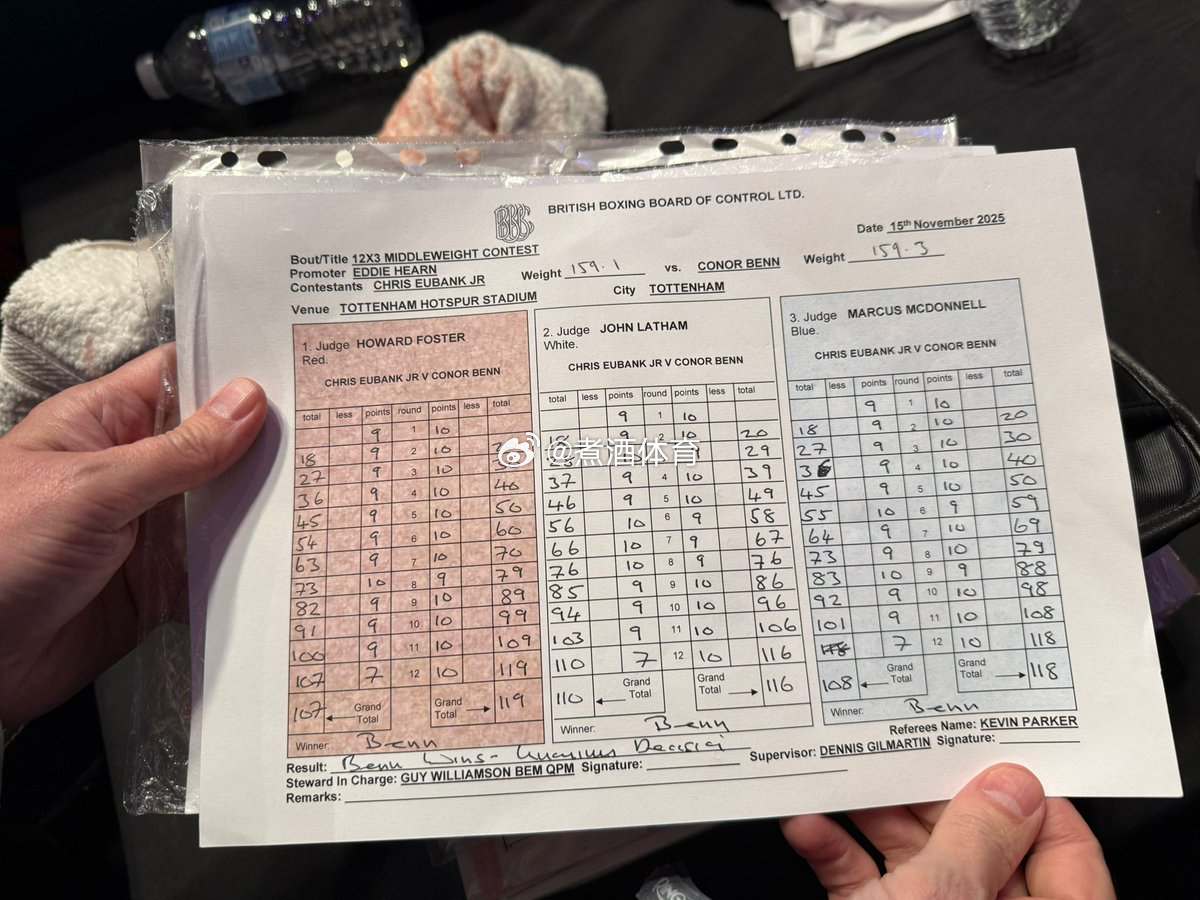 BBBC
BRITISH BOXING BOARD OF CONTROL LTD.
Date 15th November 2025
Bout/Title 12X3 MIDDLEWEIGHT CONTEST
Promoter EDDIE HEARN
Contestants CHRIS EUBANK JR Weight 159.1 vs. CONOR BENN Weight 159.3
Venue TOTTENHAM HOTSPUR STADIUM City TOTTENHAM
1. Judge HOWARD FOSTER
Red.
CHRIS EUBANK JR V CONOR BENN
total less points round points less total
9 1 10
18 9 2 10
27 9 3 10
36 9 4 10 40
45 9 5 10 50
54 9 6 10 60
63 9 7 10 70
73 10 8 9 79
82 9 9 10 89
91 9 10 10 99
100 9 11 10 109
107 7 12 10 119
107 Grand Total Grand Total 119
Winner: Benn
2. Judge JOHN LATHAM
White.
CHRIS EUBANK JR V CONOR BENN
total less points round points less total
9 1 10
18 9 2 10 20
29
37 9 4 10 39
46 9 5 10 49
56 10 6 9 58
66 10 7 9 67
76 10 8 9 76
85 9 9 10 86
94 9 10 10 96
103 9 11 10 106
110 7 12 10 116
110 Grand Total Grand Total 116
Winner: Benn
3. Judge MARCUS MCDONNELL
Blue.
CHRIS EUBANK JR V CONOR BENN
total less points round points less total
9 1 10
18 9 2 10 20
27 9 3 10 30
36 9 4 10 40
45 9 5 10 50
55 10 6 9 59
64 9 7 10 69
73 9 8 10 79
83 10 9 9 88
92 9 10 10 98
101 9 11 10 108
7 12 10 118
108 Grand Total Grand Total 118
Winner: Benn
Referees Name: KEVIN PARKER
Result: Benn Wins - Unanimous Decision
Steward In Charge: GUY WILLIAMSON BEM QPM Signature: Supervisor: DENNIS GILMARTIN Signature:
Remarks:
@煮酒体育